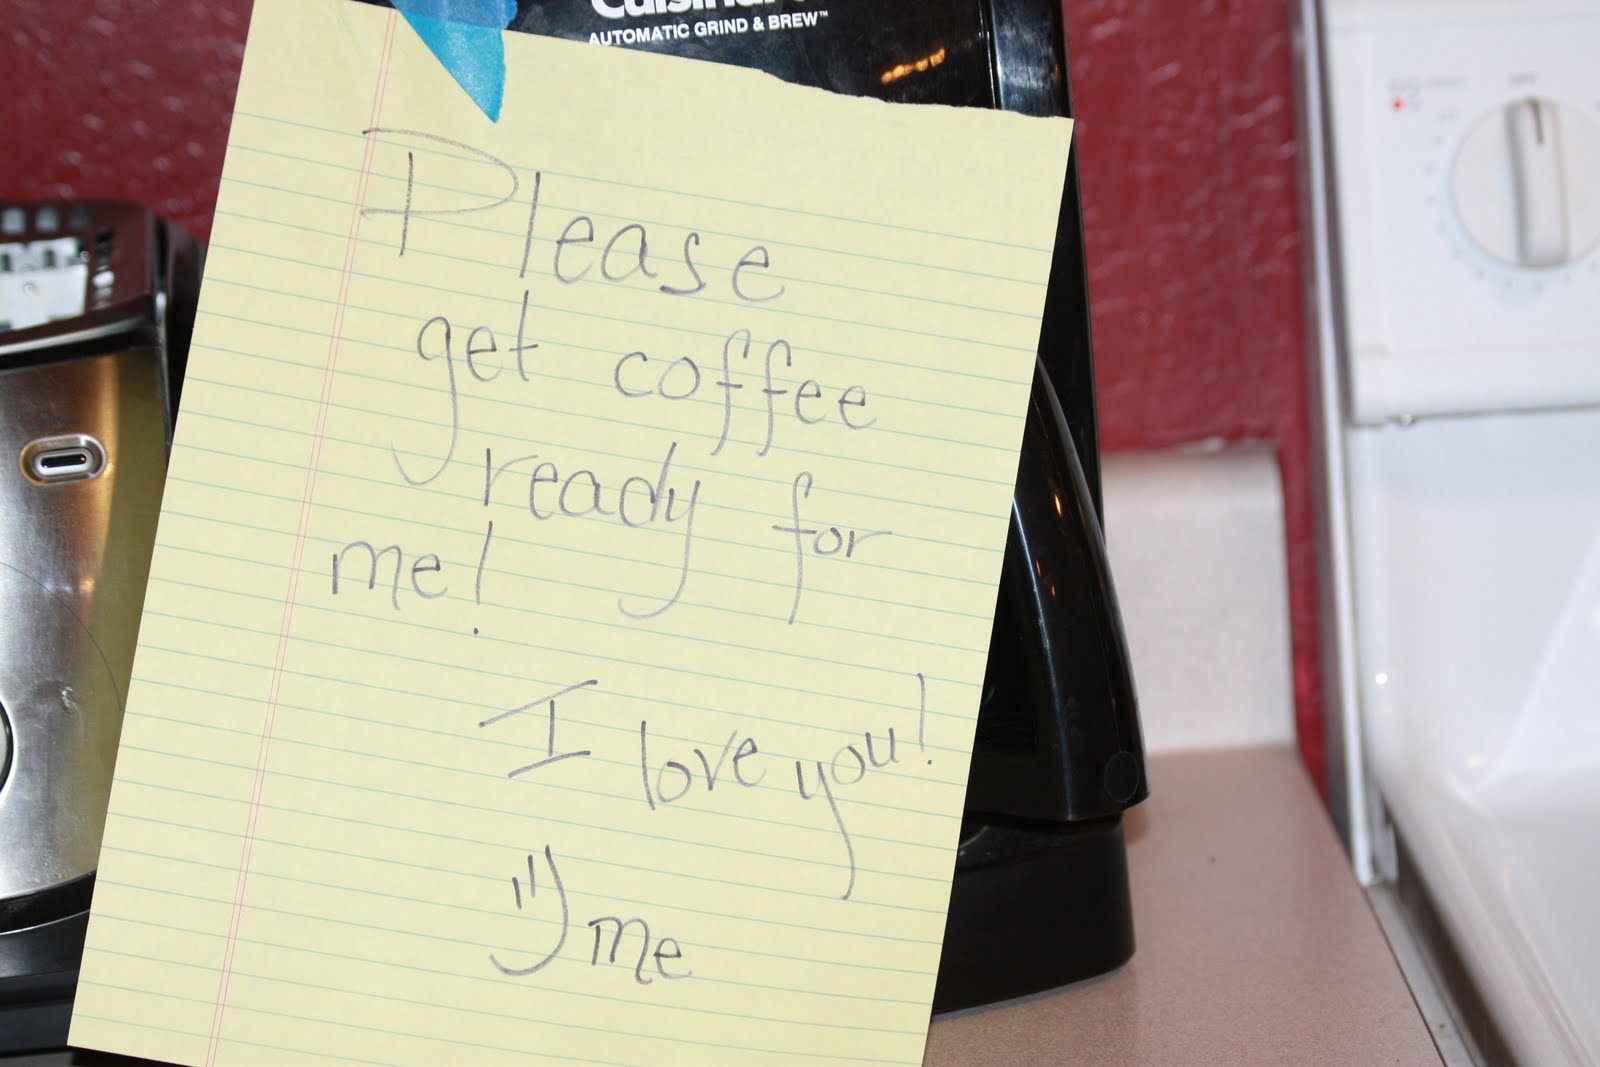 AUTOMATIC GRIND & BREW™
Please
get coffee
ready for
me!
I love you!
me